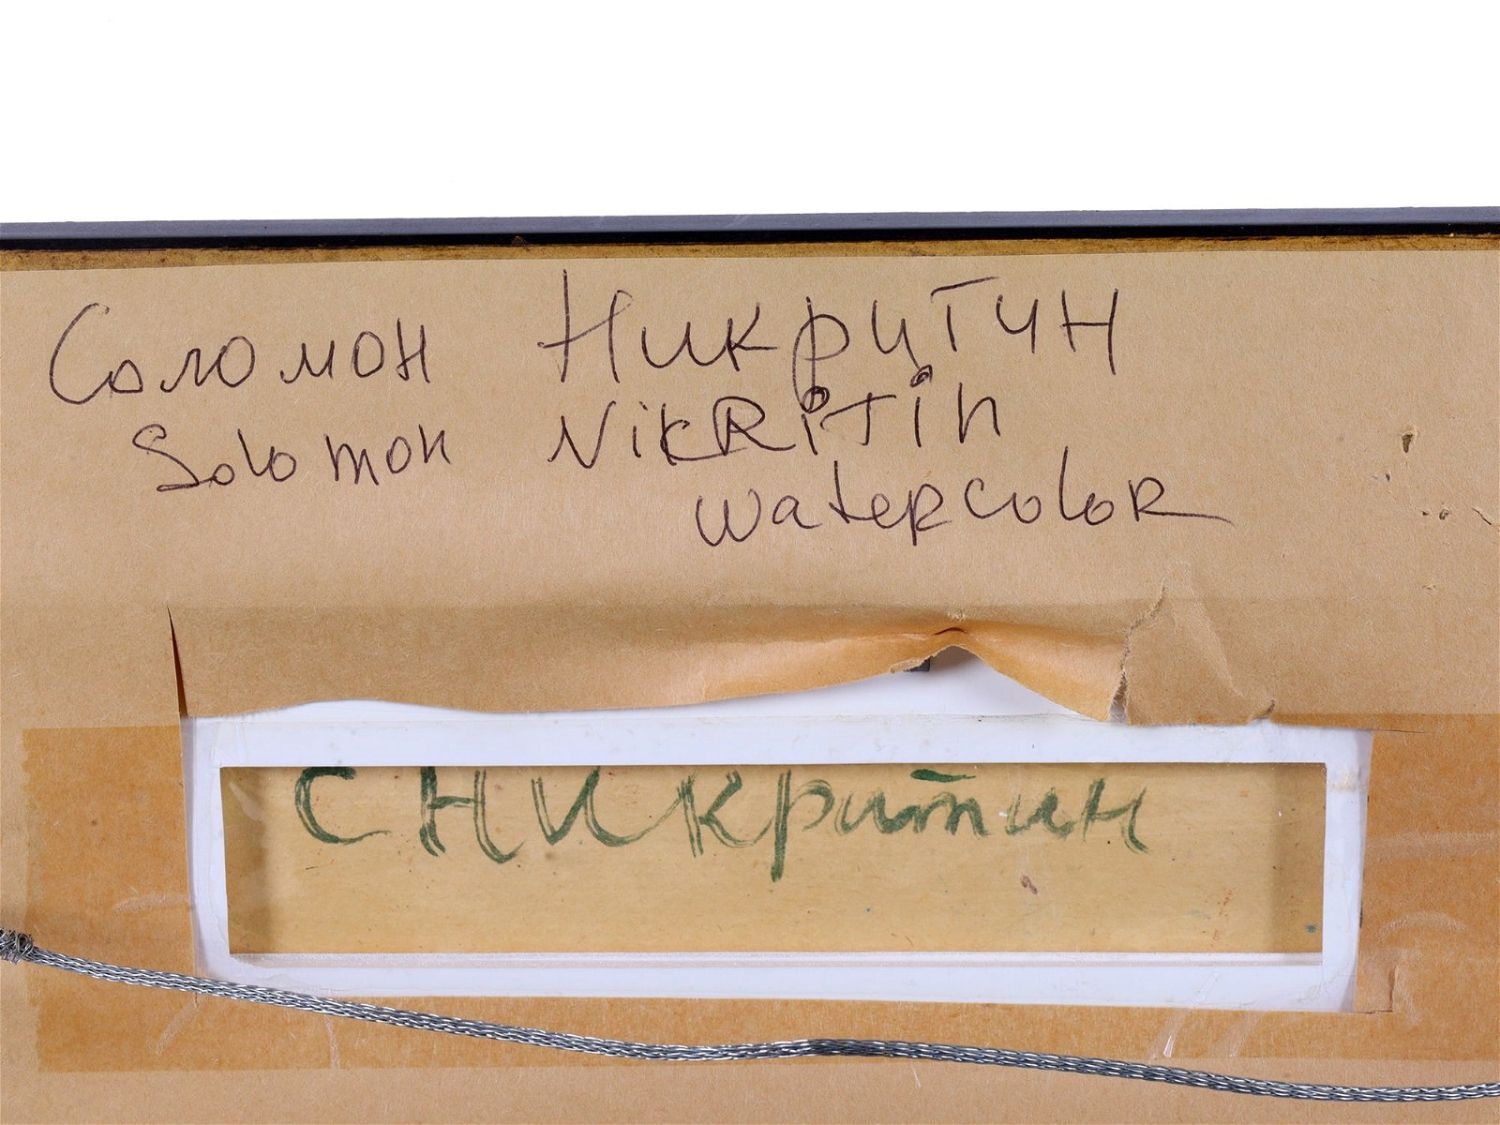 Соломон Никритин
Solomon NikRiTin
watercoloR
С Никритин